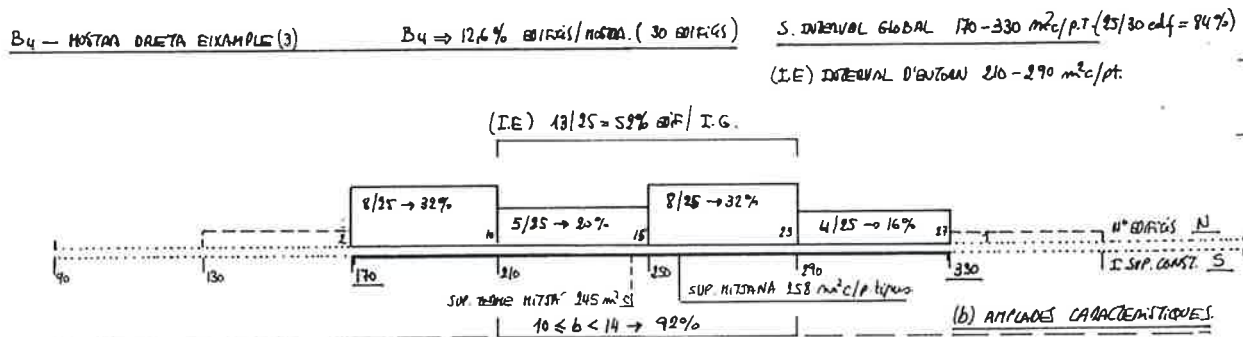 B4 — MOSTRA DRETA EIXAMPLE (3) B4 ⇒ 12,6% EDIFICIS/MOSTRA. (30 EDIFICIS) S. INTERVAL GLOBAL 170-330 m²c/p.T. (25/30 edf = 84%)
(I.E) INTERVAL D'ENTORN 210-290 m²c/pt.
(I.E) 13/25 = 52% EDIF/ I.G.
8/25 → 32% 5/25 → 20% 8/25 → 32% 4/25 → 16%
2 10 15 23 27 Nº EDIFICIS N
90 130 170 210 250 290 330 I SUP. CONST. S
SUP. TERME MITJÀ 245 m²c SUP. MITJANA 258 m²c/p tipus
10 ≤ b < 14 → 92% (b) AMPLADES CARACTERÍSTIQUES.